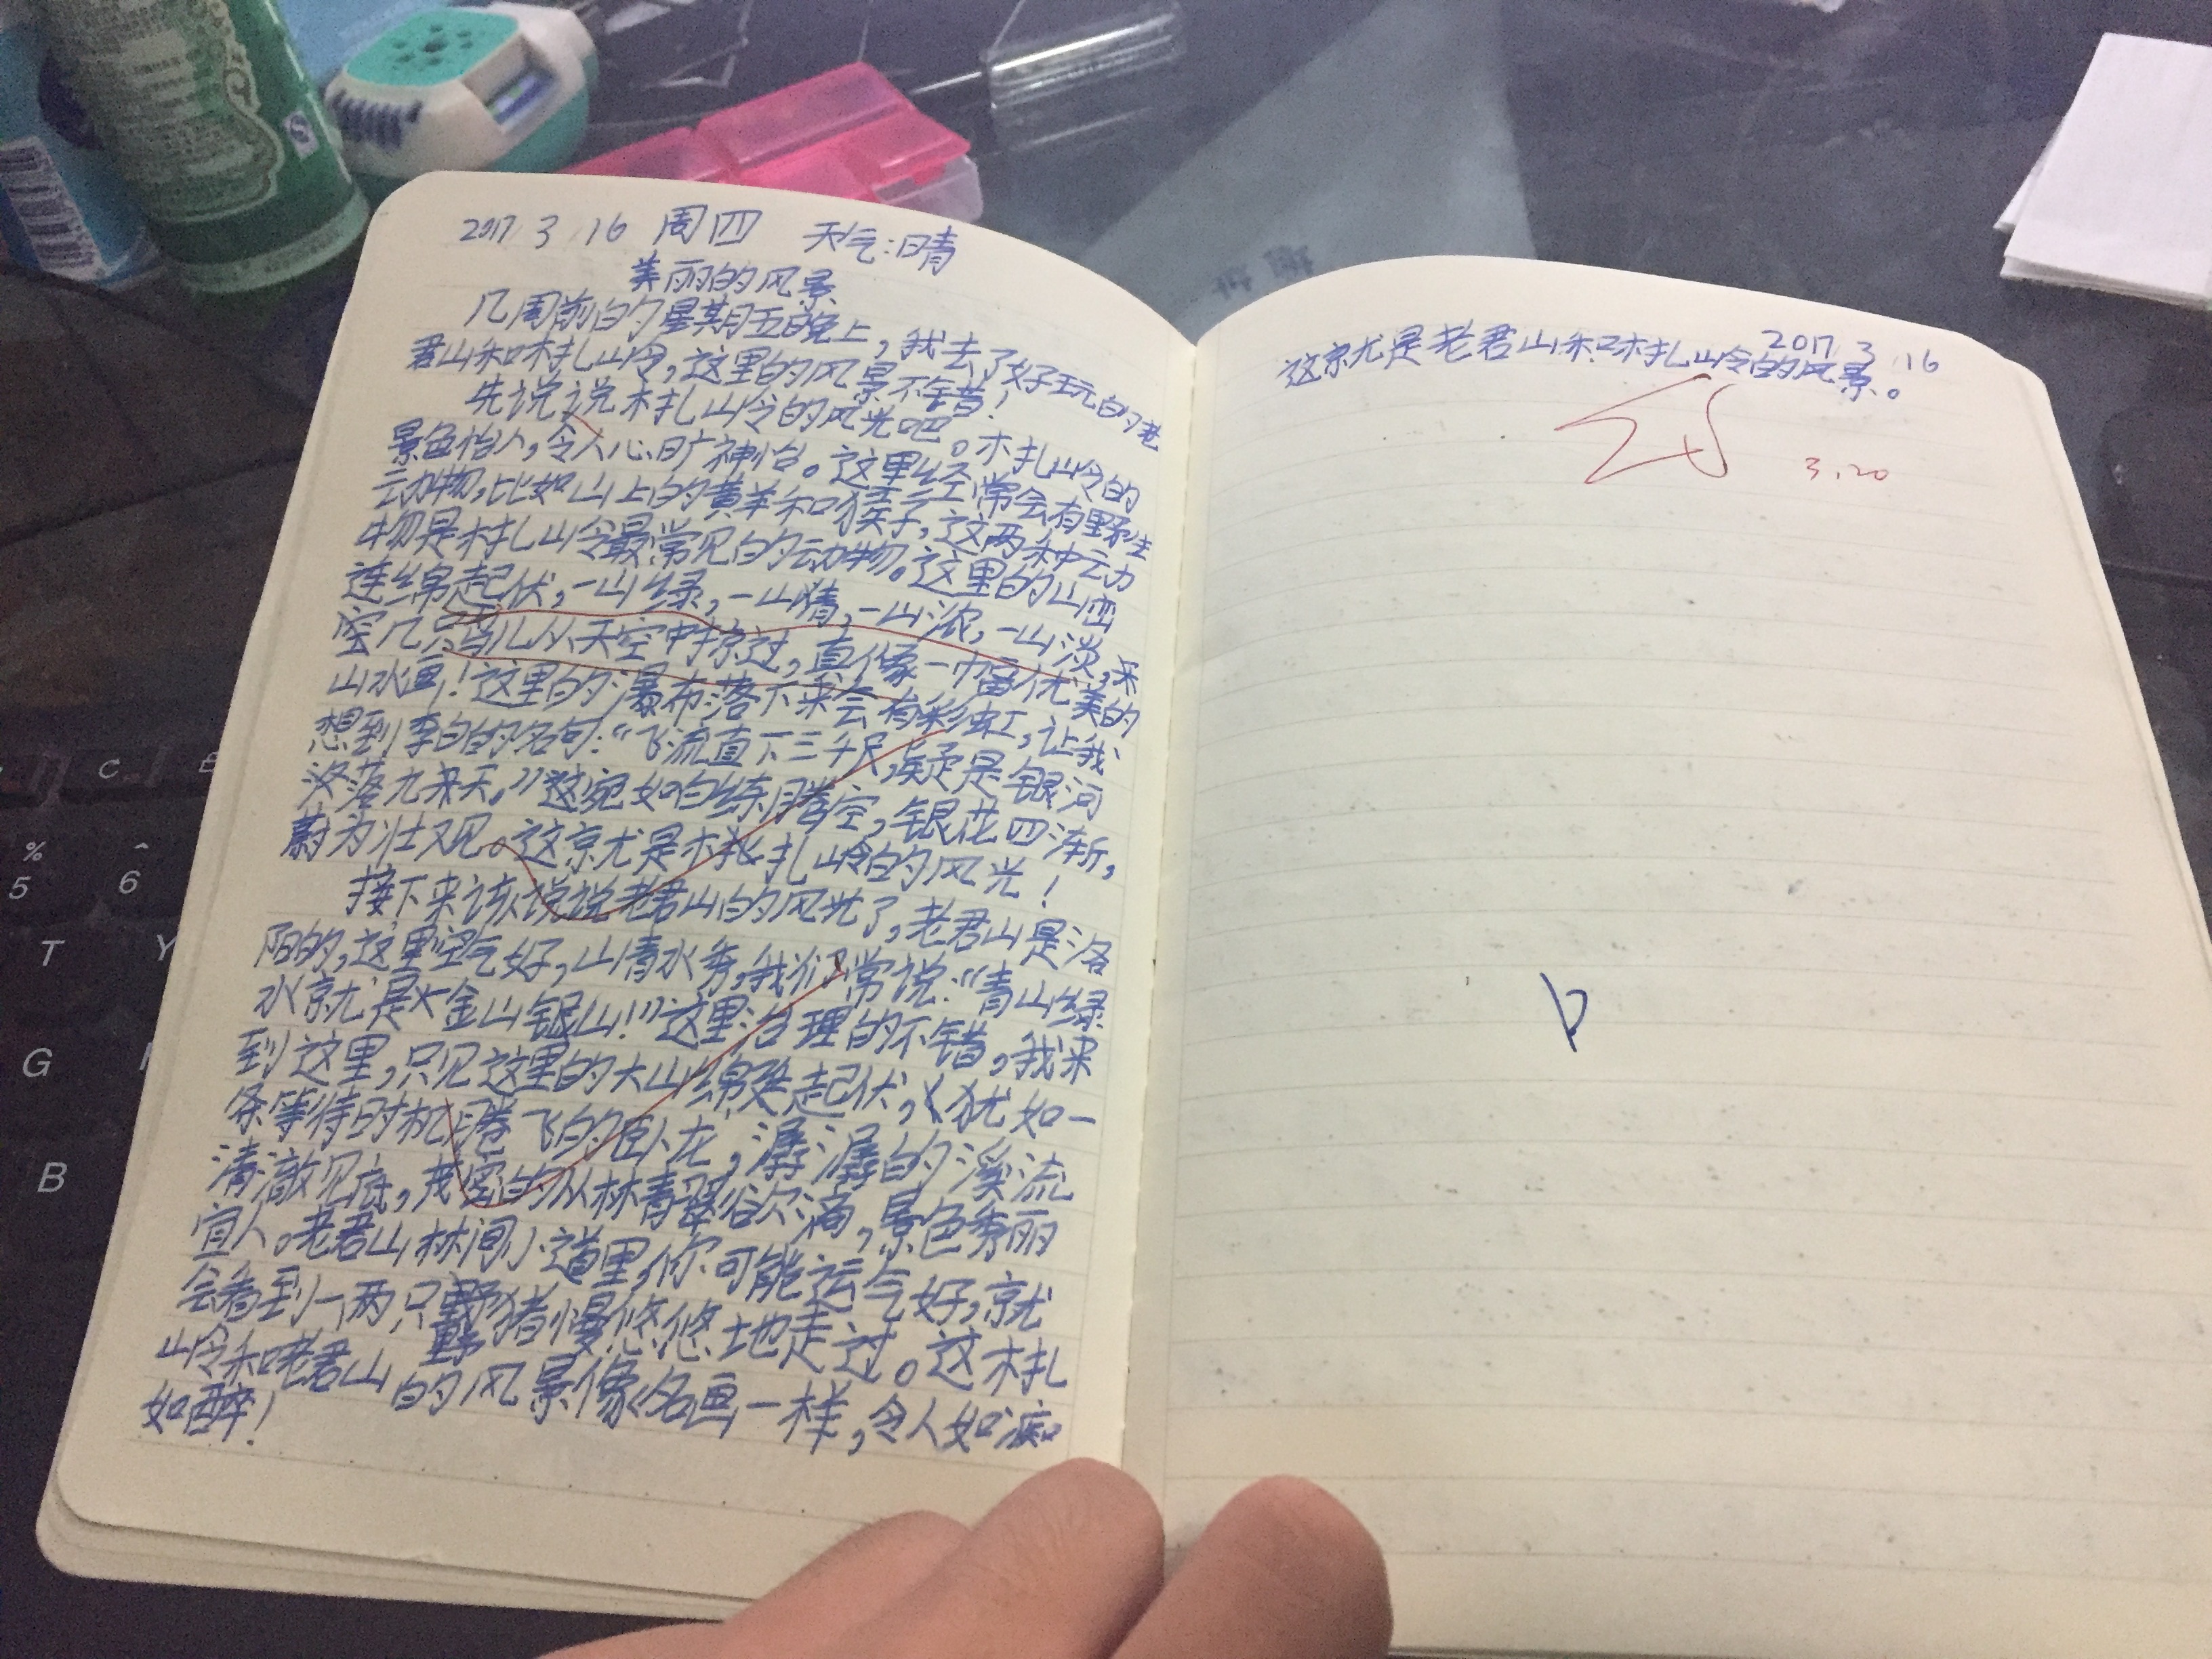 2017.3.16 周四 天气:晴
美丽的风景
几周前的星期五晚上,我去了好玩的老
君山和木扎岭,这里的风景不错!
先说说木扎岭的风光吧。木扎岭的
景色怡人,令人心旷神怡。这里经常会有野生
动物,比如山上的黄羊和猴子,这两种动
物是木扎岭最常见的动物。这里的山峦
连绵起伏,一山绿,一山清,一山浓,一山淡,
几只鸟儿从天空中掠过,直像一幅优美的
山水画!这里的瀑布落下来会有彩虹,让我
想到李白的名句:“飞流直下三千尺,疑是银河
落九天。”这宛如白练腾空,银花四渐,
蔚为壮观。这就是木扎岭的风光!
接下来该说说老君山的风光了,老君山是洛
阳的,这里空气好,山清水秀,我们常说:“青山绿
水就是金山银山!”这里治理的不错,我来
到这里,只见这里的大山绵延起伏,犹如一
条等待时机腾飞的卧龙,潺潺的溪流
清澈见底,茂密的丛林青翠欲滴,景色秀丽
宜人。老君山林间小道里,你可能运气好,就
会看到一两只野猪慢悠悠地走过。这木扎
岭和老君山的风景像名画一样,令人如痴
如醉!
2017.3.16
这就是老君山和木扎岭的风景。
3.20
C
%
5
^
6
T
Y
G
B